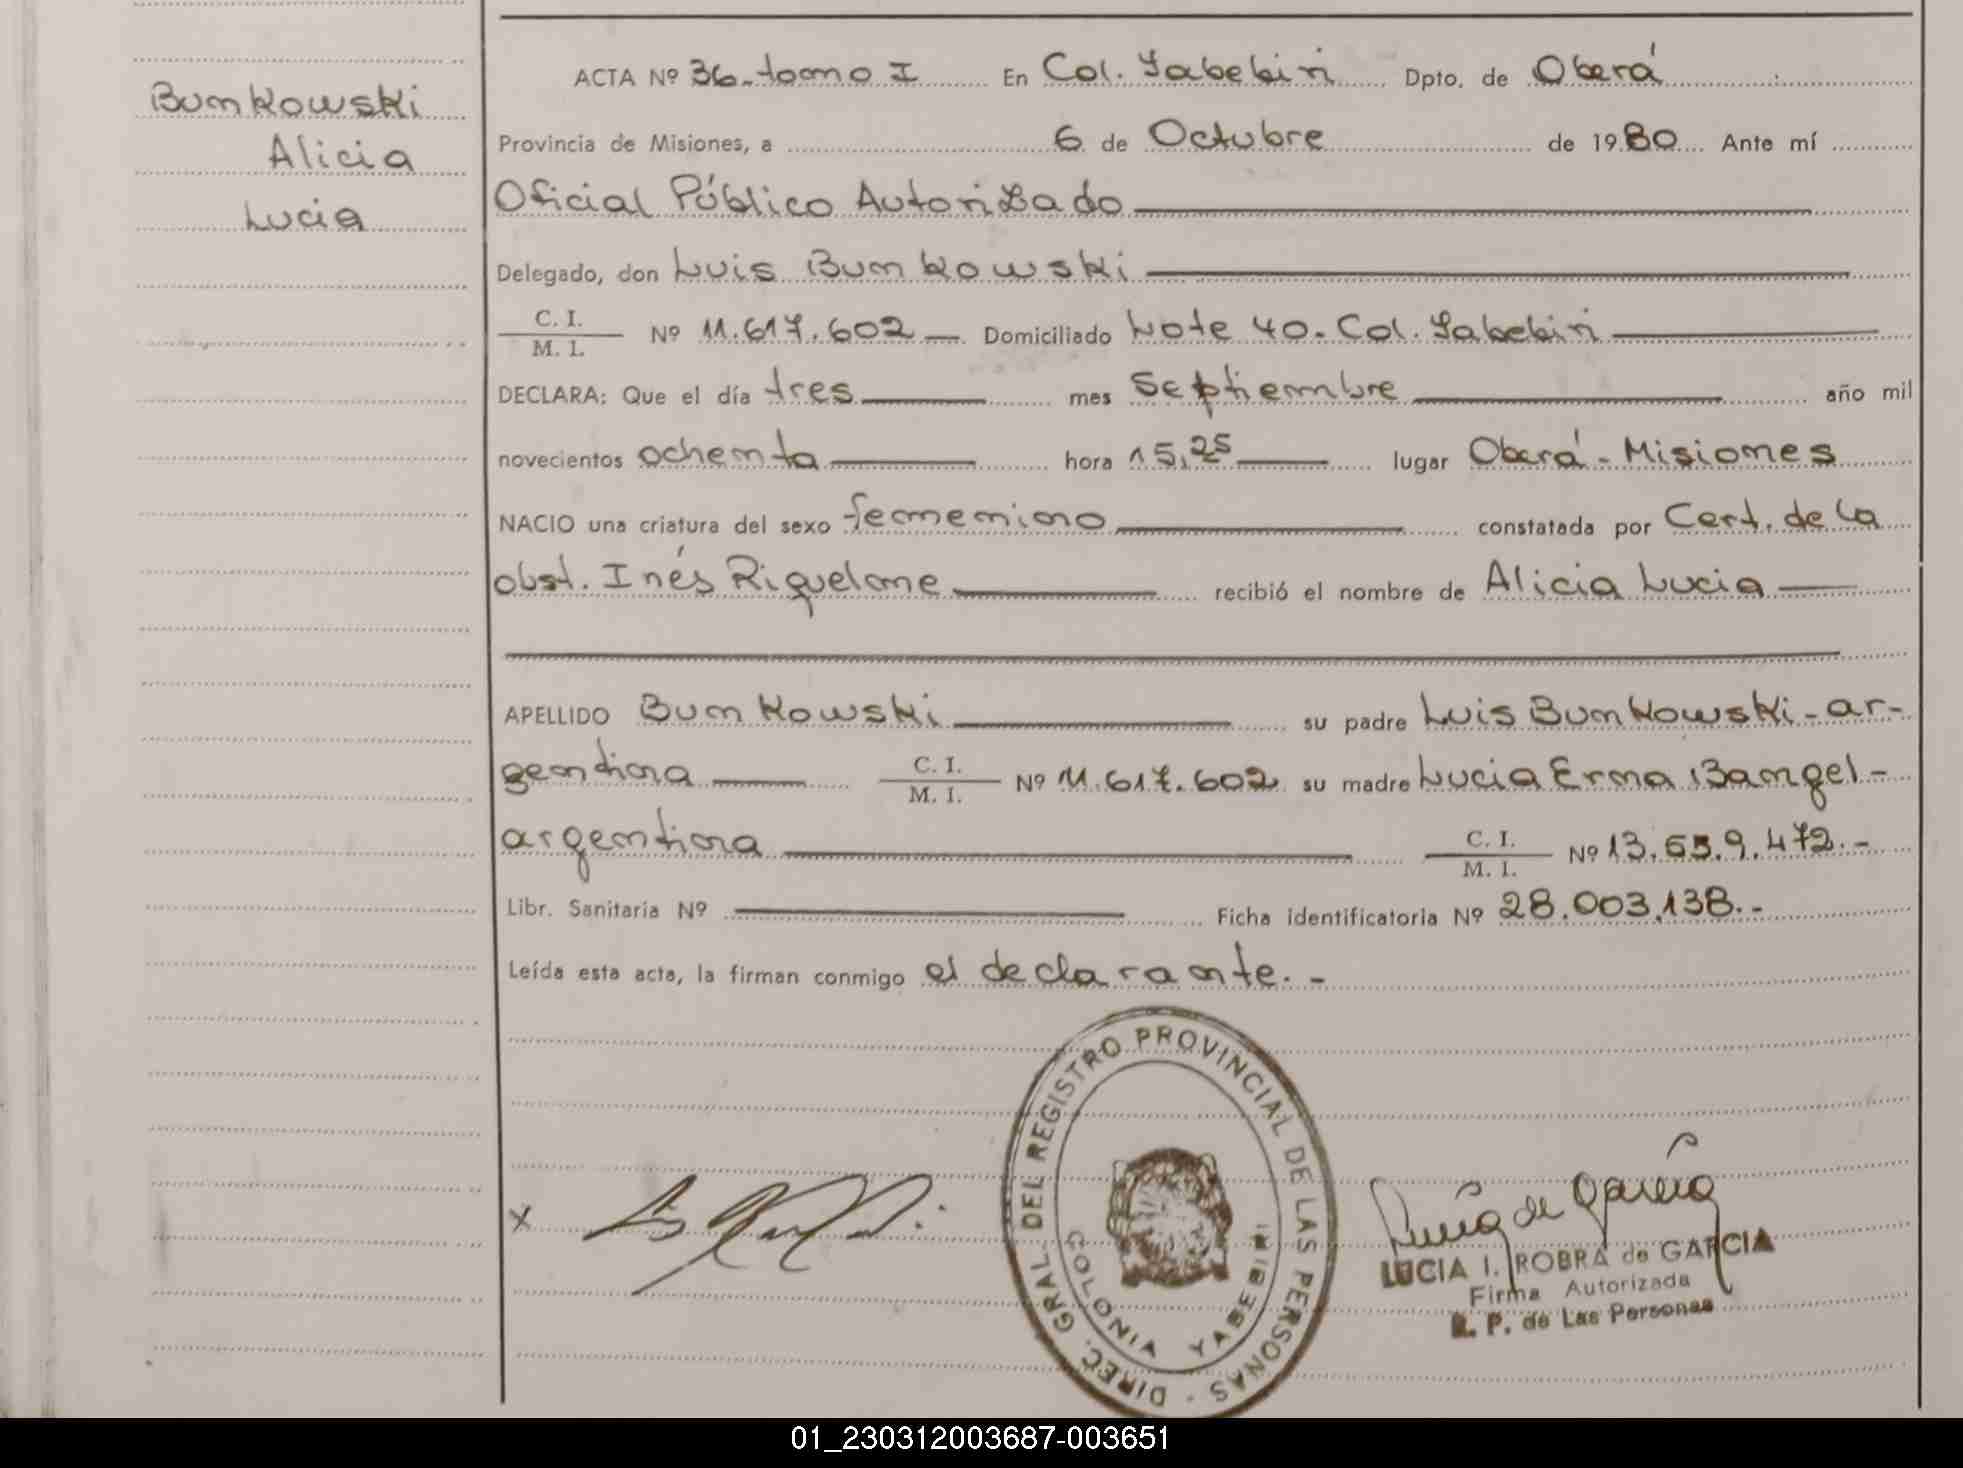 Bunkowski
Alicia
Lucia
ACTA Nº 36. tomo I En Col. Yabebiri Dpto. de Oberá
Provincia de Misiones, a 6 de Octubre de 1980 Ante mí
Oficial Público Autorizado
Delegado, don Luis Bunkowski
C. I.
M. I. Nº 11.617.602 Domiciliado Lote 40. Col. Yabebiri
DECLARA: Que el día tres mes Septiembre año mil
novecientos ochenta hora 15,25 lugar Oberá - Misiones
NACIO una criatura del sexo femenino constatada por Cert. de la
obst. Inés Riquelme recibió el nombre de Alicia Lucia
APELLIDO Bunkowski su padre Luis Bunkowski - ar-
gentina C. I.
M. I. Nº 11.617.602 su madre Lucia Erna Bangel -
argentina C. I.
M. I. Nº 13.659.472.-
Libr. Sanitaria Nº Ficha identificatoria Nº 28.003.138.-
Leída esta acta, la firman conmigo el declarante. -
x
DIREC. GRAL. DEL REGISTRO PROVINCIAL DE LAS PERSONAS -
COLONIA YABEBIRI
Lucia de Garcia
LUCIA I. ROBRA de GARCIA
Firma Autorizada
R. P. de Las Personas
01_230312003687-003651